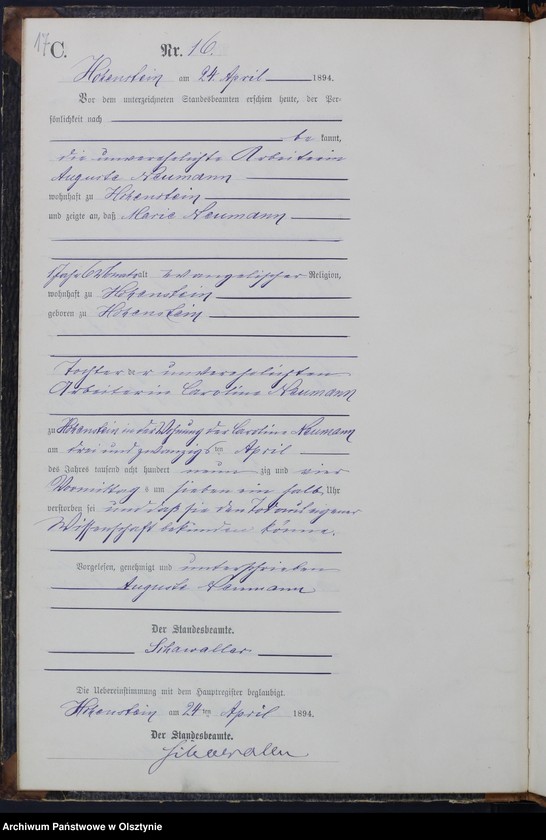 17
C.
Nr. 16.
Hohenstein am 24 April 1894.
Vor dem unterzeichneten Standesbeamten erschien heute, der Per-
sönlichkeit nach
be kannt,
die unverehelichte Arbeiterin
Auguste Neumann
wohnhaft zu Hohenstein
und zeigte an, daß Marie Neumann
1 Jahr 6 Monate alt evangelischer Religion,
wohnhaft zu Hohenstein
geboren zu Hohenstein
Tochter der unverehelichten
Arbeiterin Caroline Neumann
zu Hohenstein in der Wohnung der Caroline Neumann
am drei und zwanzigsten April
des Jahres tausend acht hundert neun zig und vier
Vormittags um sieben ein halb Uhr
verstorben sei und daß sie den Tod aus eigener
Wissenschaft bekunden könne.
Vorgelesen, genehmigt und unterschrieben
Auguste Neumann
Der Standesbeamte.
Schawaller
Die Uebereinstimmung mit dem Hauptregister beglaubigt.
Hohenstein am 24 ten April 1894.
Der Standesbeamte.
Schawaller
Archiwum Państwowe w Olsztynie